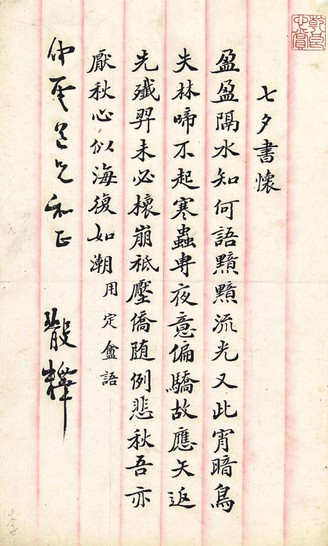 七夕書懷
盈盈隔水知何語黯黯流光又此宵暗鳥
失林啼不起寒蟲專夜意偏驕故應矢返
先殲羿未必榱崩祗壓僑隨例悲秋吾亦
厭秋心似海復如潮 用定盦語
仲雲道兄和正 散釋